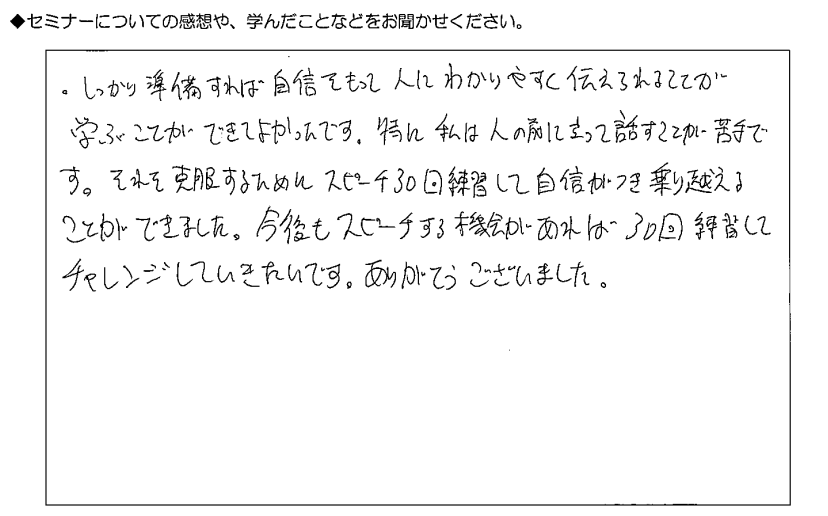 ◆セミナーについての感想や、学んだことなどをお聞かせください。
・しっかり準備すれば自信をもって人にわかりやすく伝えられることが
学ぶことができてよかったです。特に私は人の前に立って話すことが苦手で
す。それを克服するためにスピーチ30回練習して自信がつき乗り越える
ことができました。今後もスピーチする機会があれば30回練習して
チャレンジしていきたいです。ありがとうございました。